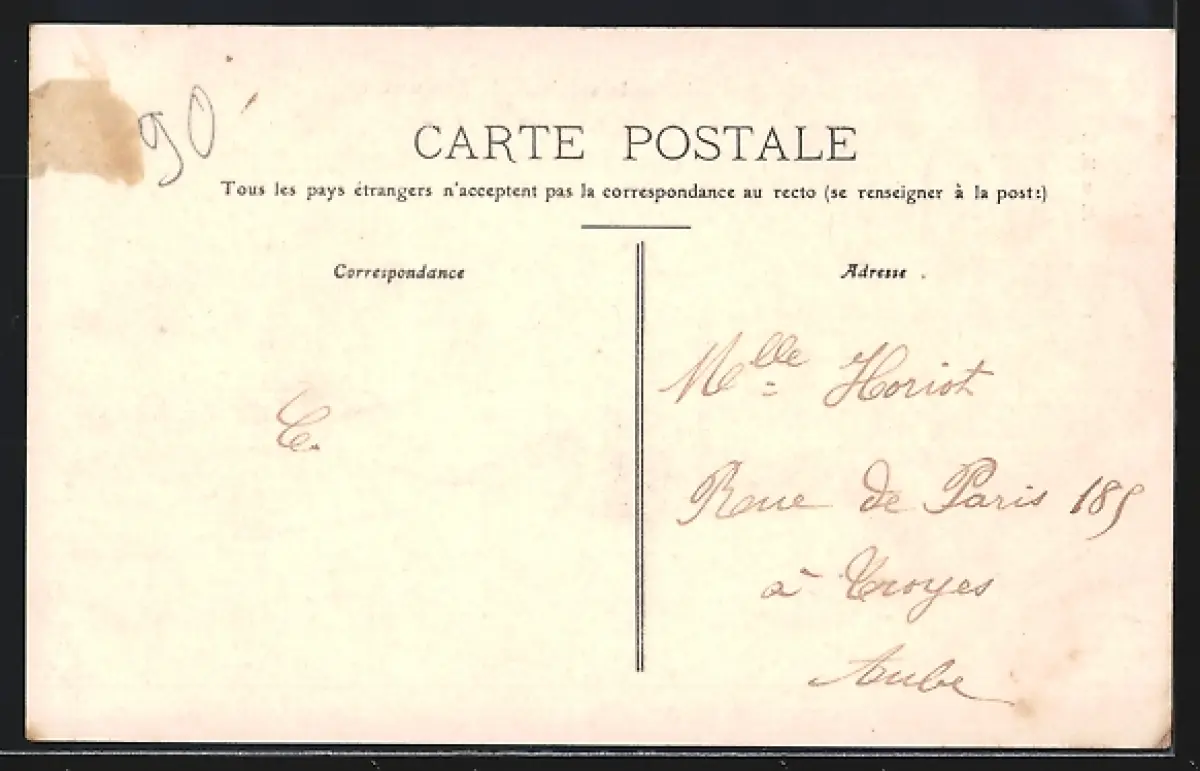 90
CARTE POSTALE
Tous les pays étrangers n'acceptent pas la correspondance au recto (se renseigner à la poste)
Correspondance
Adresse
C.
Melle Horiot
Rue de Paris 185
à Troyes
Aube